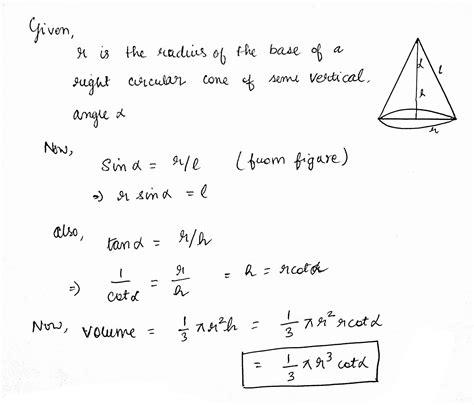 Given,
r is the radius of the base of a
right circular cone of semi vertical.
angle α
Now,
Sin α = r/l (from figure)
=> r sin α = l
also,
tan α = r/h
=> 1/cot α = r/h = h = r cot α
Now, volume = 1/3 π r² h = 1/3 π r² r cot α
= 1/3 π r³ cot α
α
l
h
r